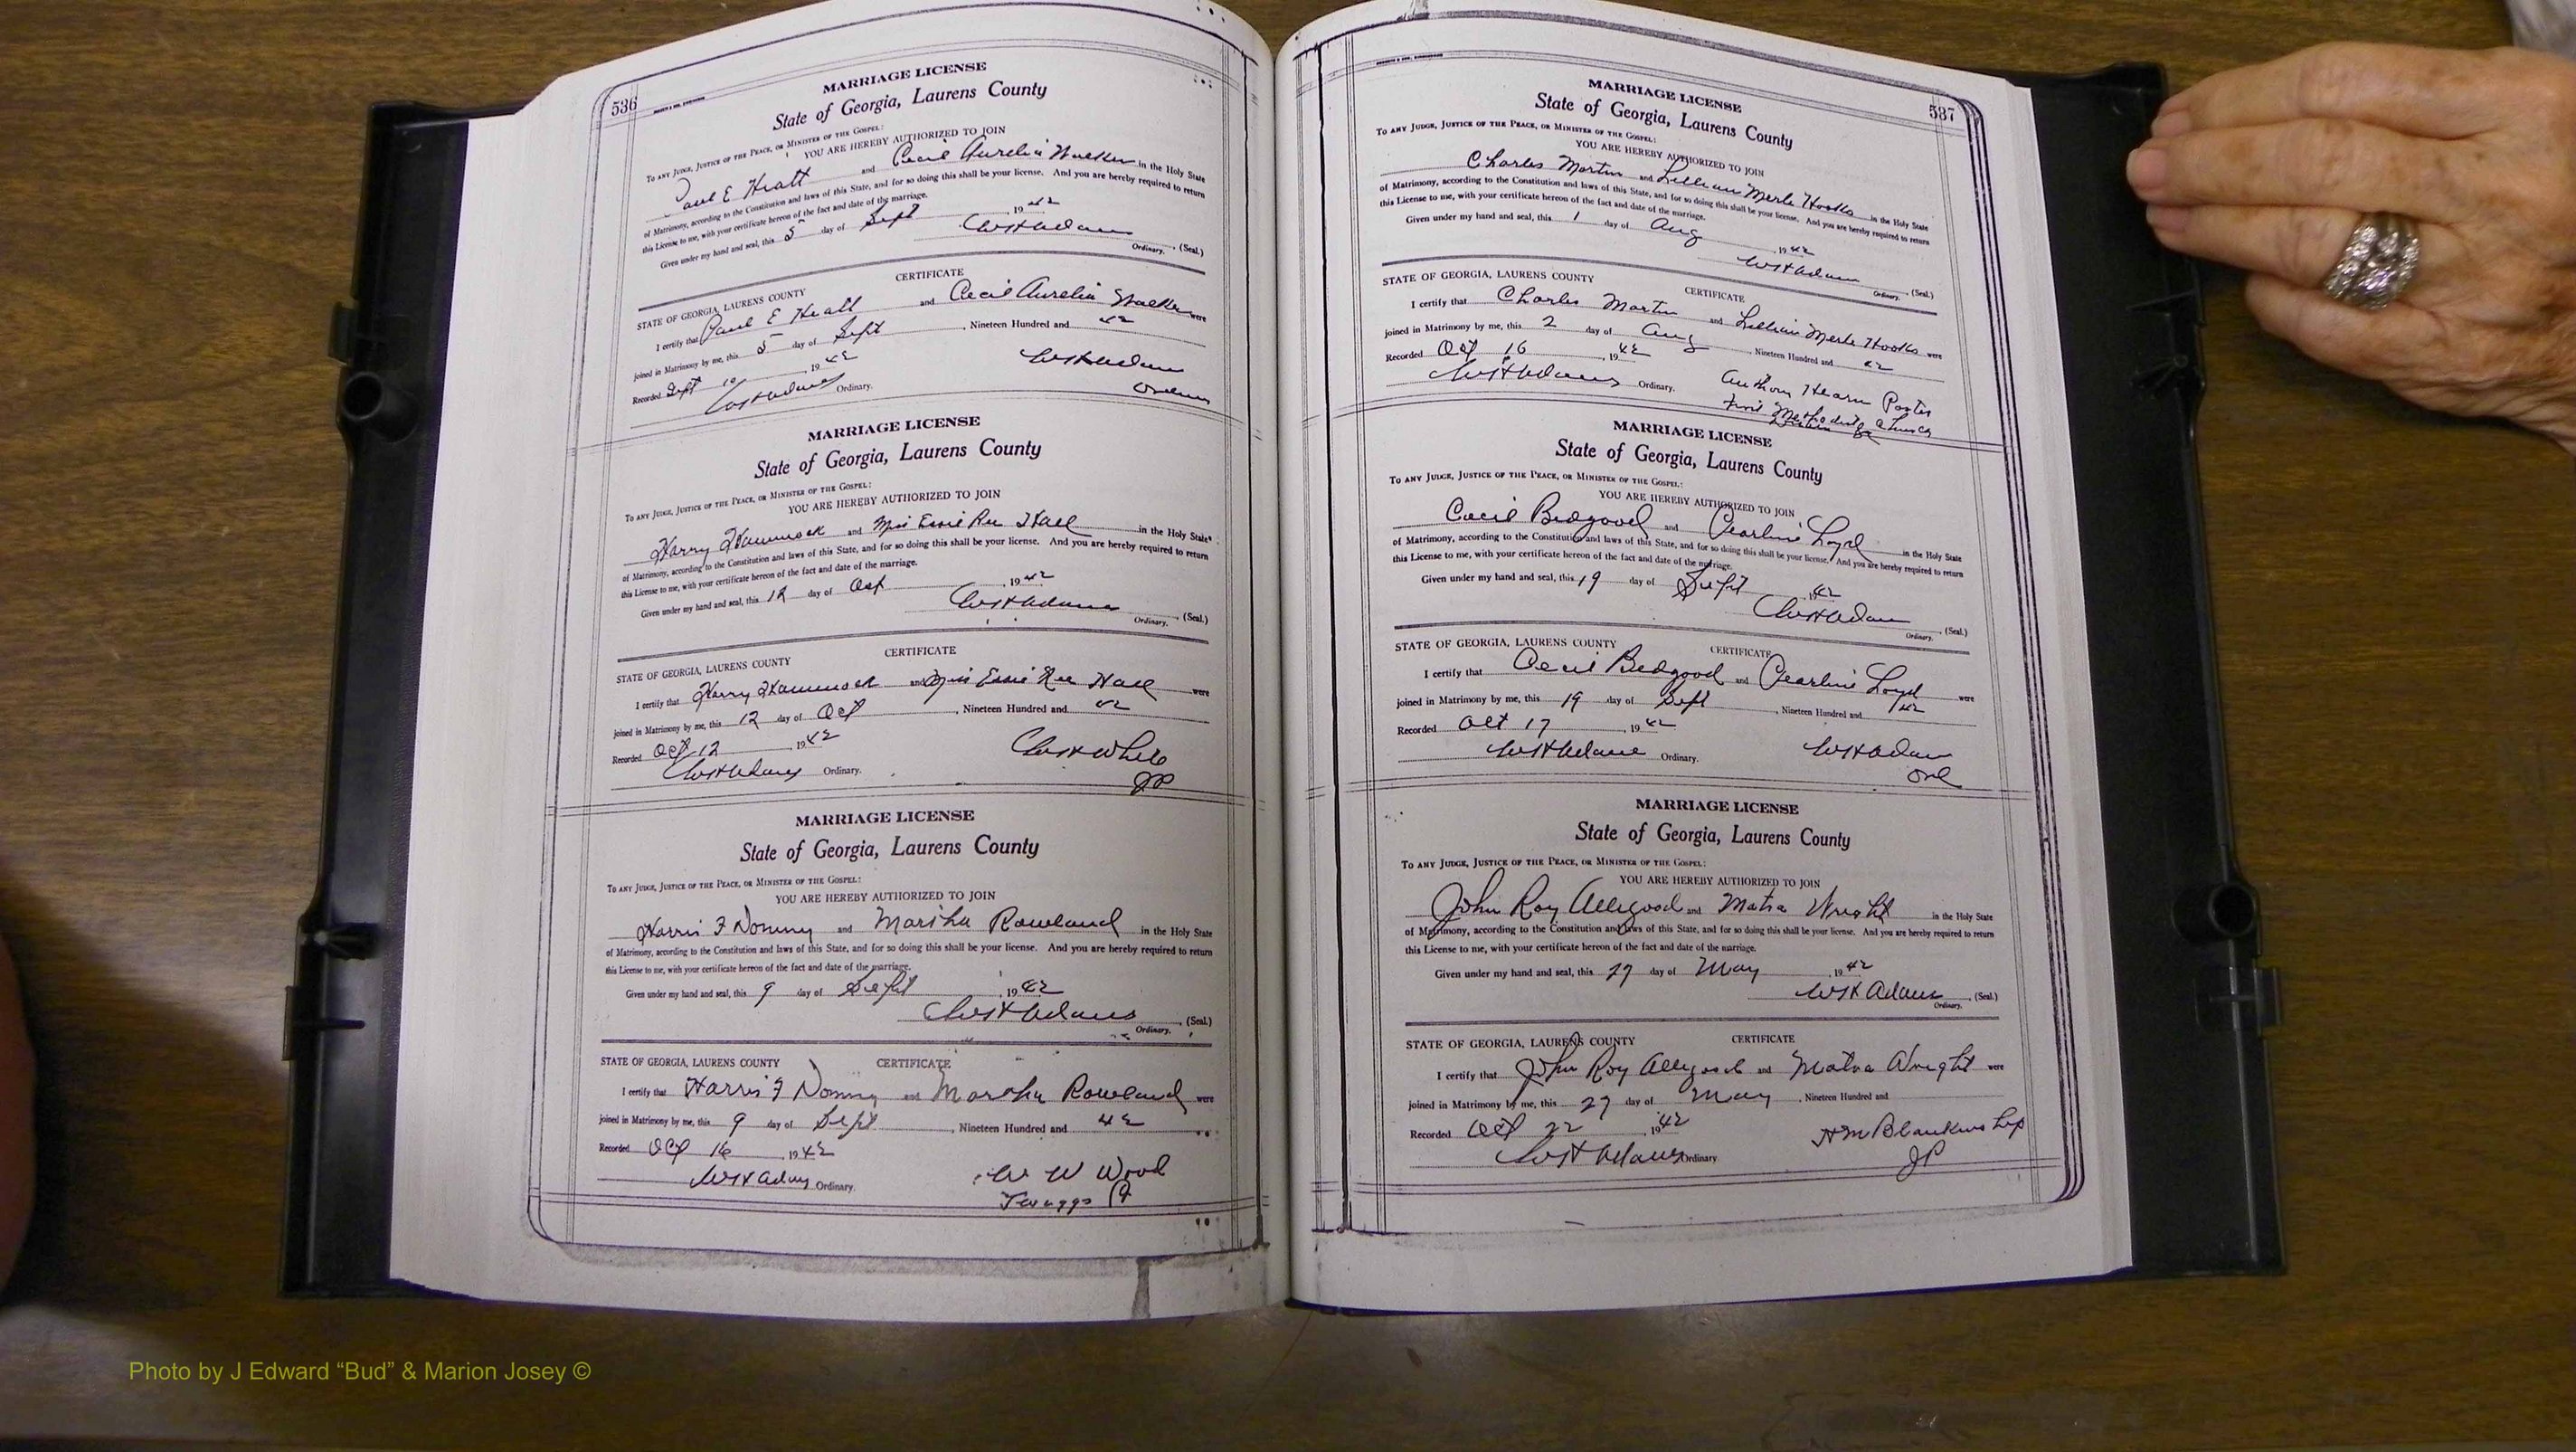 536
MARRIAGE LICENSE
State of Georgia, Laurens County
To any Judge, Justice of the Peace, or Minister of the Gospel:
YOU ARE HEREBY AUTHORIZED TO JOIN
Paul E Heatt and Cecil Aurelia Walker in the Holy State
of Matrimony, according to the Constitution and laws of this State, and for so doing this shall be your license. And you are hereby required to return
this License to me, with your certificate hereon of the fact and date of the marriage.
Given under my hand and seal, this 5 day of Sept 1942
WH Adams (Seal.)
Ordinary.
CERTIFICATE
STATE OF GEORGIA, LAURENS COUNTY
I certify that Paul E Heatt and Cecil Aurelia Walker were
joined in Matrimony by me, this 5 day of Sept, Nineteen Hundred and 42
Recorded Sept 10, 1942 WH Adams
WH Adams Ordinary.
MARRIAGE LICENSE
State of Georgia, Laurens County
To any Judge, Justice of the Peace, or Minister of the Gospel:
YOU ARE HEREBY AUTHORIZED TO JOIN
Harry Hammock and Miss Essie Ree Hall in the Holy State
of Matrimony, according to the Constitution and laws of this State, and for so doing this shall be your license. And you are hereby required to return
this License to me, with your certificate hereon of the fact and date of the marriage.
Given under my hand and seal, this 12 day of Oct, 1942
WH Adams (Seal.)
Ordinary.
CERTIFICATE
STATE OF GEORGIA, LAURENS COUNTY
I certify that Harry Hammock and Miss Essie Ree Hall were
joined in Matrimony by me, this 12 day of Oct, Nineteen Hundred and 42
Recorded Oct 12, 1942 WH White
WH Adams Ordinary. JP
MARRIAGE LICENSE
State of Georgia, Laurens County
To any Judge, Justice of the Peace, or Minister of the Gospel:
YOU ARE HEREBY AUTHORIZED TO JOIN
Harris F and Marsha Rowland in the Holy State
of Matrimony, according to the Constitution and laws of this State, and for so doing this shall be your license. And you are hereby required to return
this License to me, with your certificate hereon of the fact and date of the marriage.
Given under my hand and seal, this 9 day of Sept, 1942
WH Adams (Seal.)
Ordinary.
STATE OF GEORGIA, LAURENS COUNTY CERTIFICATE
I certify that Harris F and Marsha Rowland were
joined in Matrimony by me, this 9 day of Sept, Nineteen Hundred and 42
Recorded Oct 16, 1942
WH Adams Ordinary. W W Wood
537
MARRIAGE LICENSE
State of Georgia, Laurens County
To any Judge, Justice of the Peace, or Minister of the Gospel:
YOU ARE HEREBY AUTHORIZED TO JOIN
Charles Martin and Lillian Merle Hooks in the Holy State
of Matrimony, according to the Constitution and laws of this State, and for so doing this shall be your license. And you are hereby required to return
this License to me, with your certificate hereon of the fact and date of the marriage.
Given under my hand and seal, this 1 day of Aug, 1942
WH Adams (Seal.)
Ordinary.
STATE OF GEORGIA, LAURENS COUNTY CERTIFICATE
I certify that Charles Martin and Lillian Merle Hooks were
joined in Matrimony by me, this 2 day of Aug, Nineteen Hundred and 42
Recorded Oct 16, 1942
WH Adams Ordinary. Anthony Hearn Pastor
First Methodist Church
MARRIAGE LICENSE
State of Georgia, Laurens County
To any Judge, Justice of the Peace, or Minister of the Gospel:
YOU ARE HEREBY AUTHORIZED TO JOIN
Cecil Bedgood and Pearline Loyd in the Holy State
of Matrimony, according to the Constitution and laws of this State, and for so doing this shall be your license. And you are hereby required to return
this License to me, with your certificate hereon of the fact and date of the marriage.
Given under my hand and seal, this 19 day of Sept 1942
WH Adams (Seal.)
Ordinary.
STATE OF GEORGIA, LAURENS COUNTY CERTIFICATE
I certify that Cecil Bedgood and Pearline Loyd were
joined in Matrimony by me, this 19 day of Sept, Nineteen Hundred and 42
Recorded Oct 17, 1942
WH Adams Ordinary. WH Adams
Ord
MARRIAGE LICENSE
State of Georgia, Laurens County
To any Judge, Justice of the Peace, or Minister of the Gospel:
YOU ARE HEREBY AUTHORIZED TO JOIN
John Roy Allegood and Matra Wright in the Holy State
of Matrimony, according to the Constitution and laws of this State, and for so doing this shall be your license. And you are hereby required to return
this License to me, with your certificate hereon of the fact and date of the marriage.
Given under my hand and seal, this 27 day of May, 1942
WH Adams (Seal.)
Ordinary.
STATE OF GEORGIA, LAURENS COUNTY CERTIFICATE
I certify that John Roy Allegood and Matra Wright were
joined in Matrimony by me, this 27 day of May, Nineteen Hundred and
Recorded Oct 22, 1942 HM Blankenship
WH Adams Ordinary JP
Photo by J Edward “Bud” & Marion Josey ©